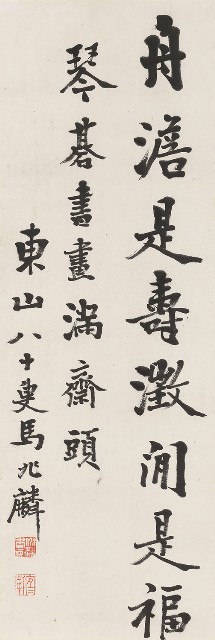 舟澹是壽澂閒是福
琴碁書畫滿齋頭
東山八十叟馬兆麟